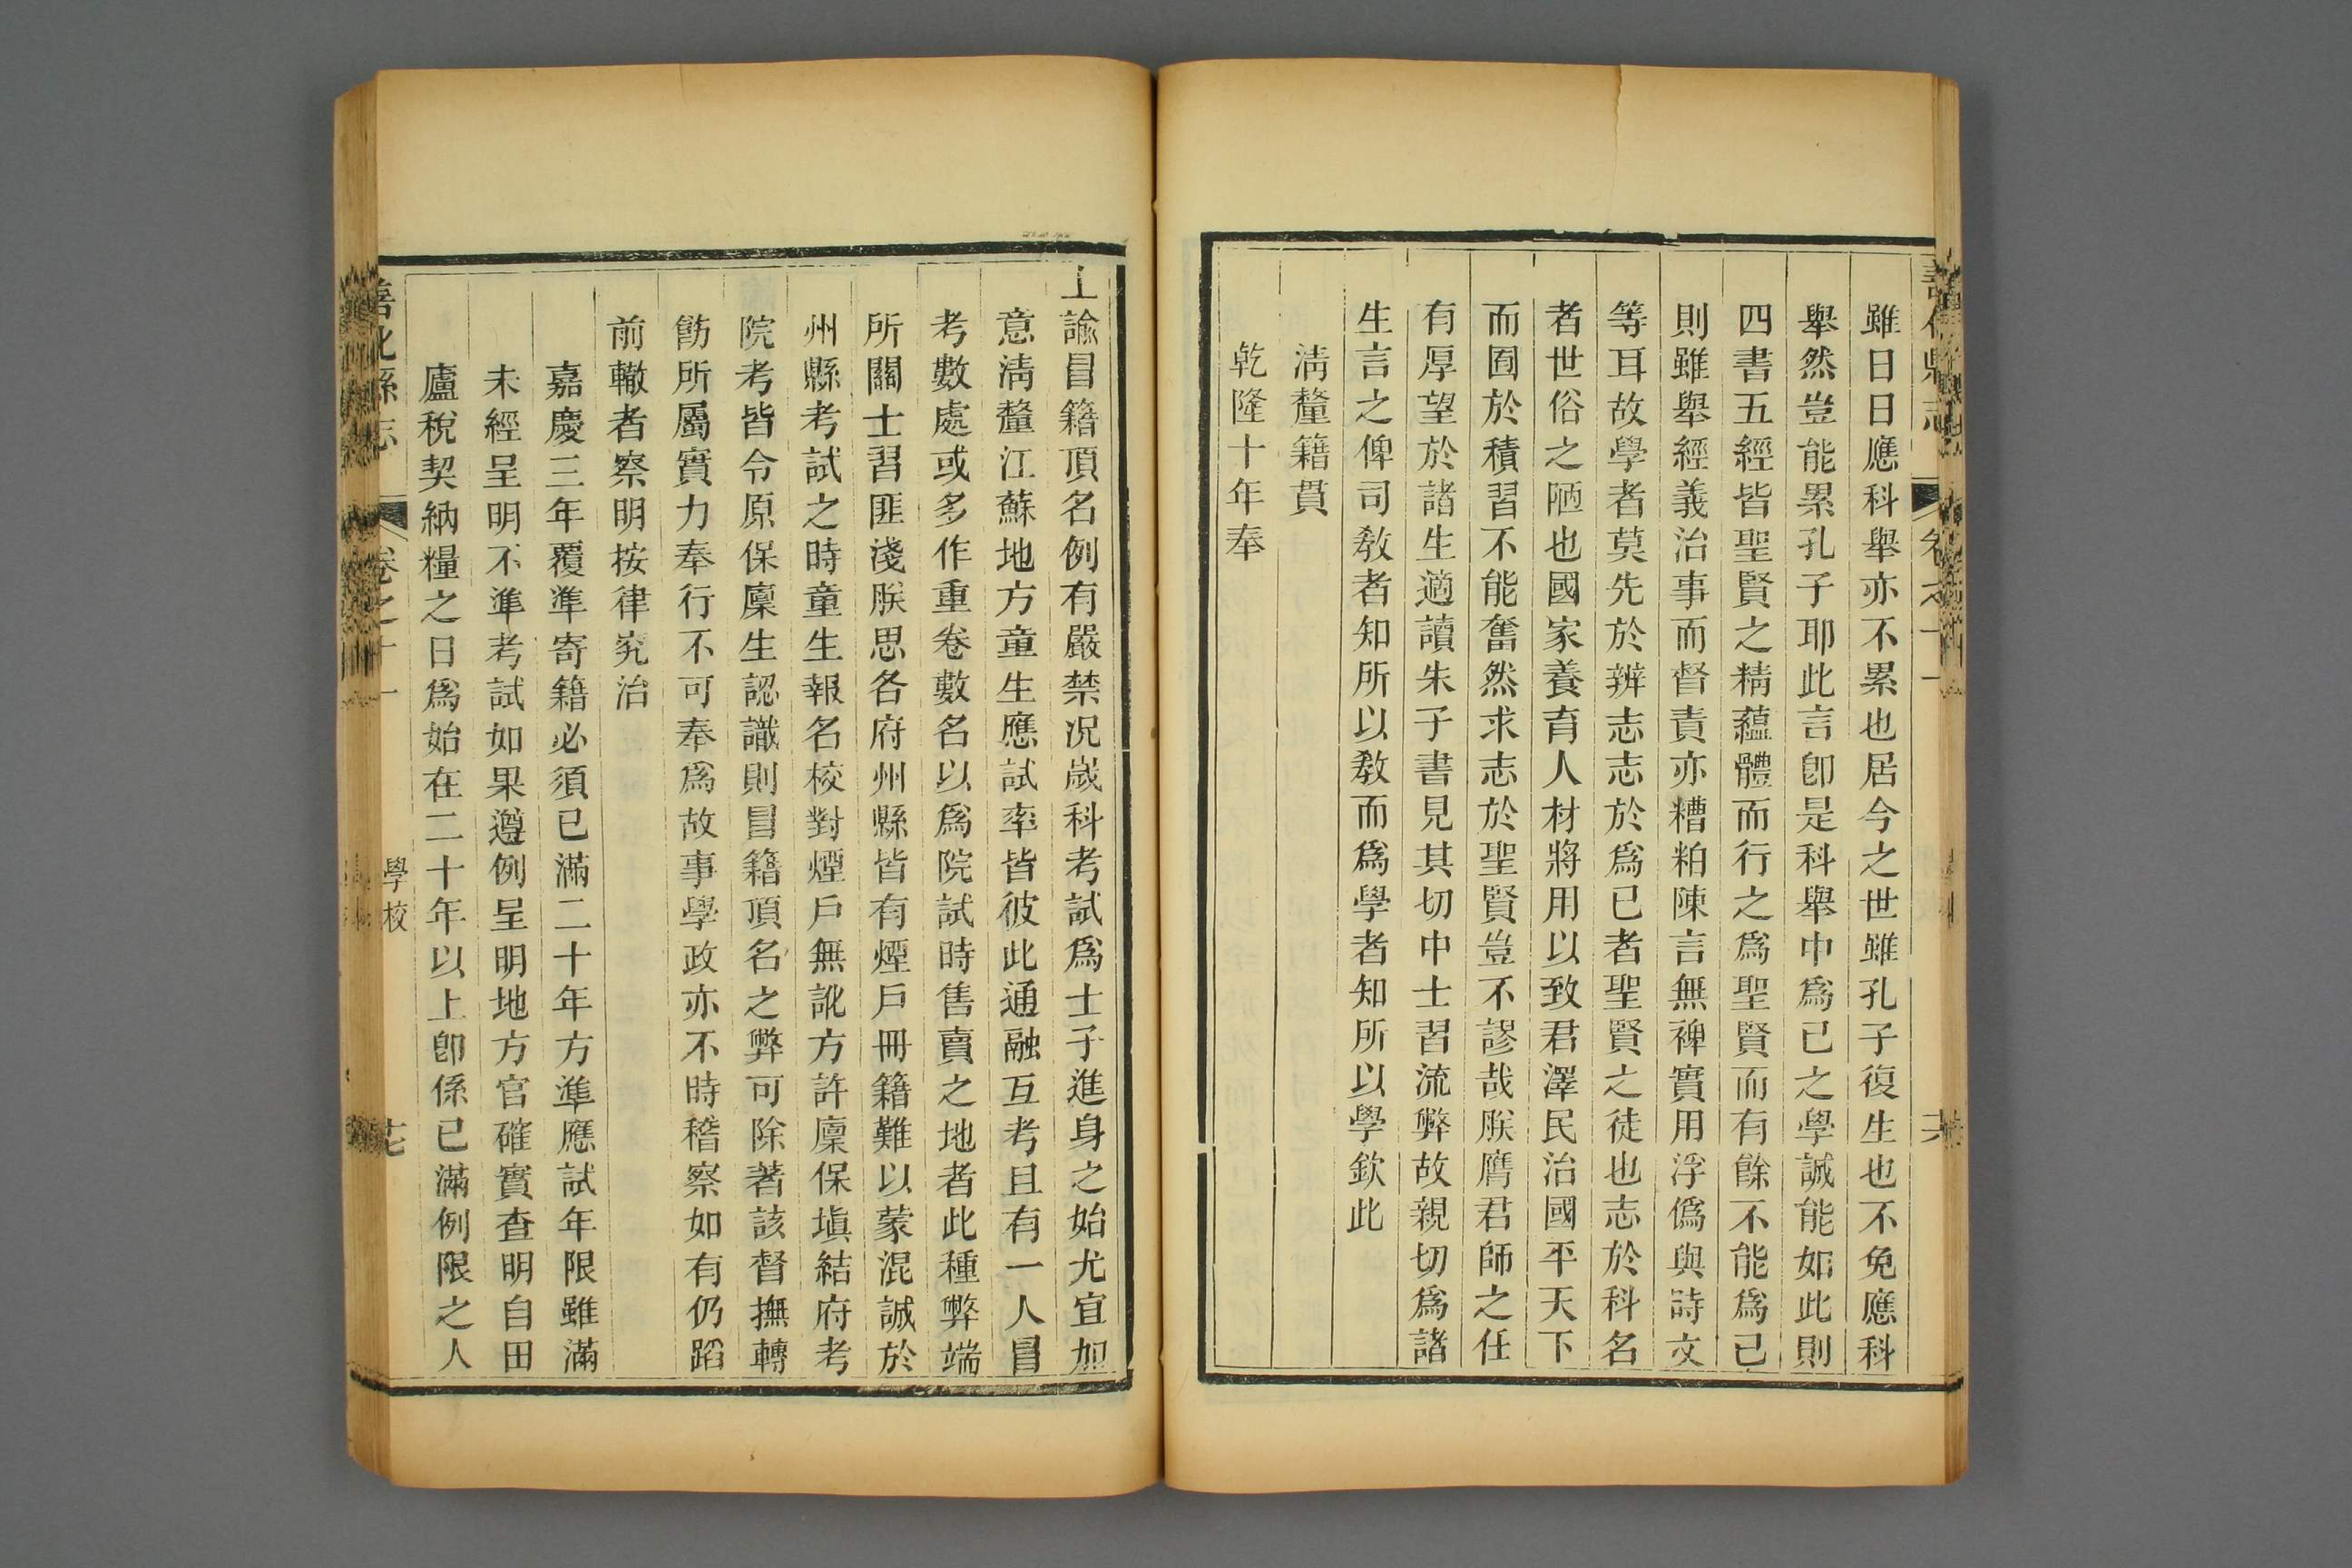 雖日日應科舉亦不累也居今之世雖孔子復生也不免應科
舉然豈能累孔子耶此言卽是科舉中爲已之學誠能如此則
四書五經皆聖賢之精蘊體而行之爲聖賢而有餘不能爲己
則雖舉經義治事而督責亦糟粕陳言無裨實用浮僞與詩文
等耳故學者莫先於辨志志於爲已者聖賢之徒也志於科名
者世俗之陋也國家養育人材將用以致君澤民治國平天下
而囿於積習不能奮然求志於聖賢豈不謬哉朕膺君師之任
有厚望於諸生適讀朱子書見其切中士習流弊故親切爲諸
生言之俾司敎者知所以敎而爲學者知所以學欽此
淸釐籍貫
乾隆十年奉
上諭冒籍頂名例有嚴禁况歲科考試爲士子進身之始尤宜加
意淸釐江蘇地方童生應試率皆彼此通融互考且有一人冒
考數處或多作重卷數名以爲院試時售賣之地者此種弊端
所關士習匪淺朕思各府州縣皆有煙戶冊籍難以蒙混誠於
州縣考試之時童生報名校對煙戶無訛方許廩保塡結府考
院考皆令原保廩生認識則冒籍頂名之弊可除著該督撫轉
飭所屬實力奉行不可奉爲故事學政亦不時稽察如有仍蹈
前轍者察明按律究治
嘉慶三年覆準寄籍必須已滿二十年方準應試年限雖滿
未經呈明不準考試如果遵例呈明地方官確實查明自田
廬稅契納糧之日爲始在二十年以上卽係已滿例限之人
善化縣志
卷之十一
學校